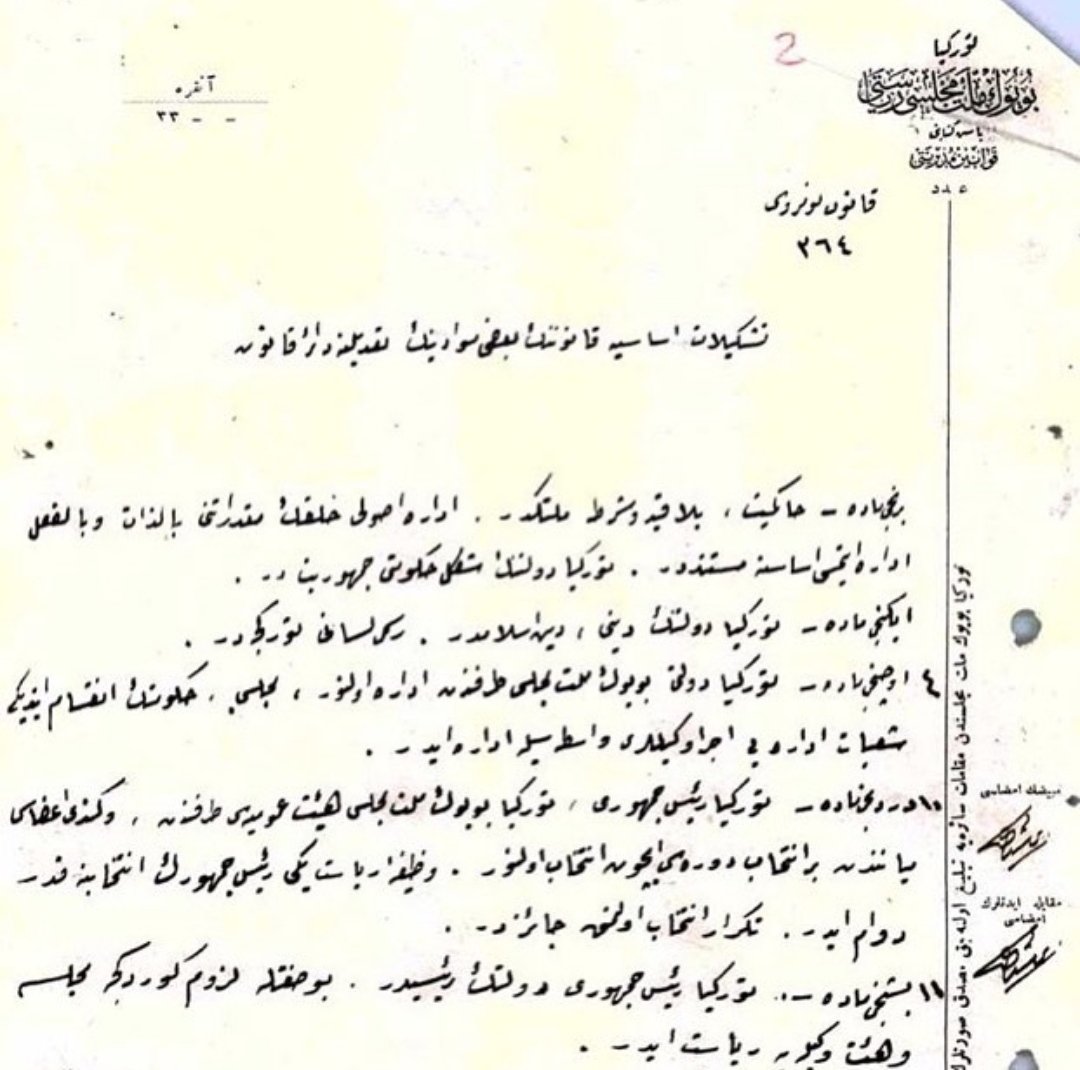 2
توركيا
بويوك ملت مجلسى رياستى
باش كتابتى
قوانين مديريتى
عدد
آنقره
- - ٣٣
قانون نومروسى
٣٦٤
تشكيلات اساسيه قانوننك بعض موادينك تعديلنه دائر قانون
برنجى ماده - حاكميت ، بلا قيد و شرط ملتكدر . اداره اصولى خلقك مقدراتنى بالذات و بالفعل
اداره ايتمسى اساسنه مستنددر . توركيا دولتنك شكل حكومتى جمهوريت در .
ايكنجى ماده - توركيا دولتنك دينى ، دين اسلامدر . رسمى لسانى توركجه در .
٤ اوچنجى ماده - توركيا دولتى بويوك ملت مجلسى طرفندن اداره اولنور ، مجلس ، حكومتك انقسام ايتديكى
شعبات اداره يى اجرا وكيللرى واسطه سيله اداره ايدر .
١٠ دردنجى ماده - توركيا رئيس جمهورى ، توركيا بويوك ملت مجلسى هيئت عموميه سى طرفندن ، و كندى اعضاسى
مياننده بر انتخاب دوره سى ايچون انتخاب اولنور . وظيفهٔ رياست يكى رئيس جمهورك انتخابنه قدر
دوام ايدر . تكرار انتخاب اولنمق جائزدر .
١١ بشنجى ماده - توركيا رئيس جمهورى دولتك رئيسيدر . بو صفتله لزوم كوردكجه مجلسه
و هيئت وكيله يه رياست ايدر .
توركيا بويوك ملت مجلسندن مقامات سائره يه تبليغ اولنه جق مصدق صورتلرك
مبيضك امضاسى
مقابله ايدنلرك
امضاسى